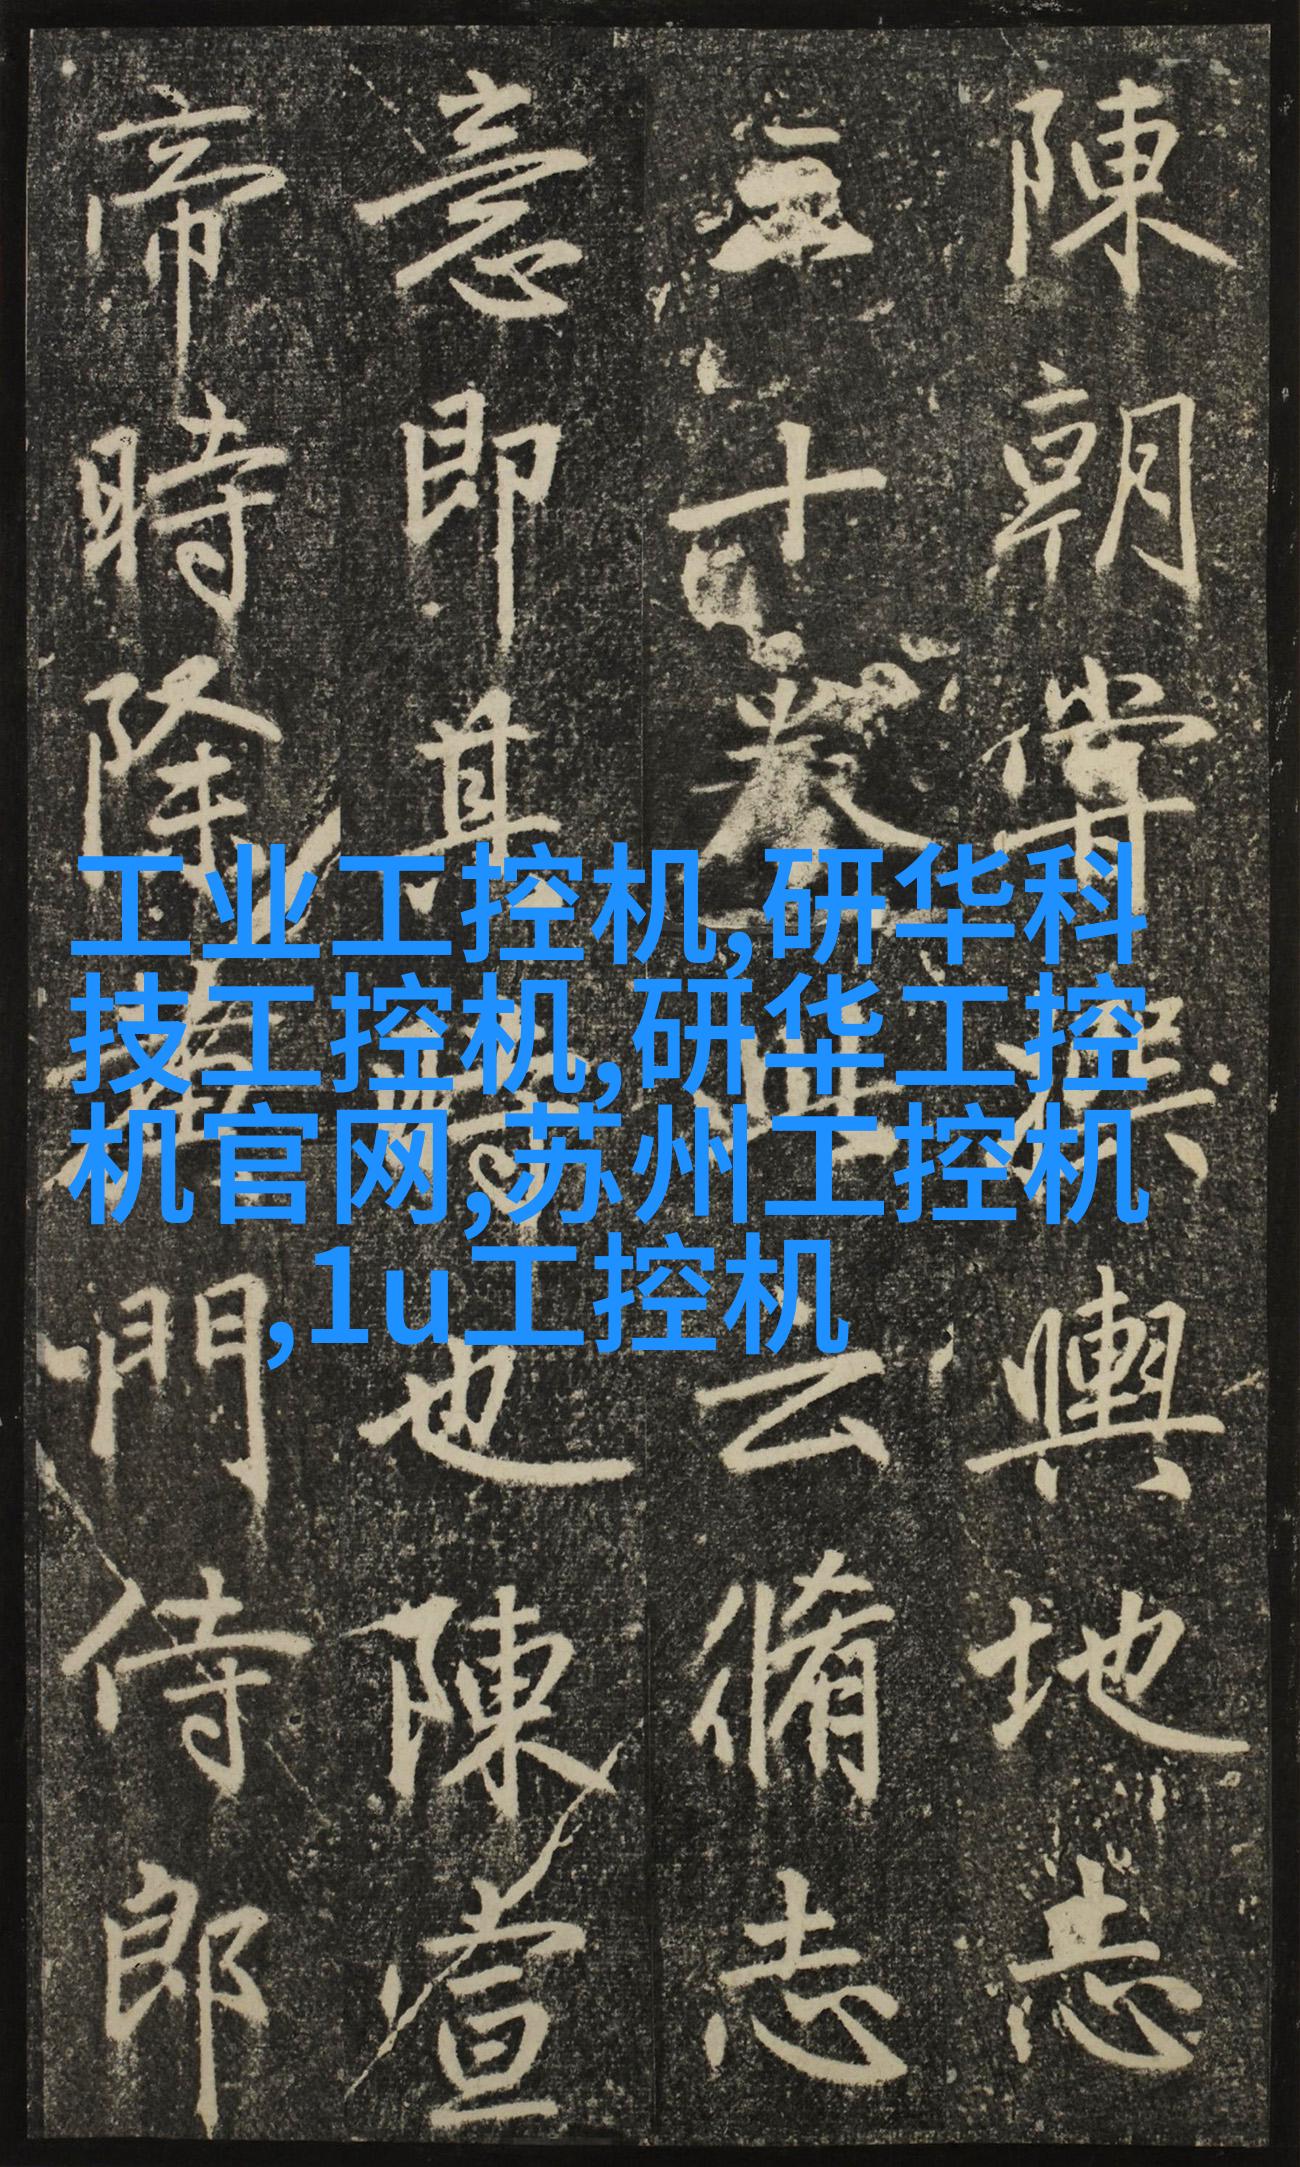 陳朝嘗撰輿地志
三十卷此云脩志
意即其書也陳宣
帝時除黃門侍郎
工业工控机,研华科
技工控机,研华工控
机官网,苏州工控机
,1u工控机